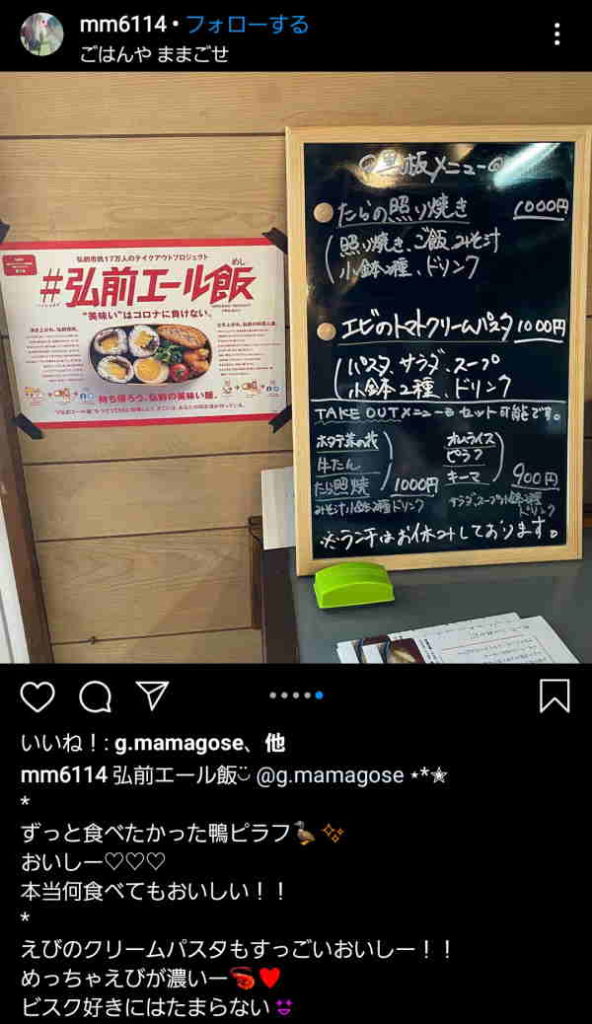 mm6114 • フォローする
ごはんや ままごせ
弘前市民17万人のテイクアウトプロジェクト
めし
#弘前エール飯
"美味い"はコロナに負けない。
持ち帰ろう、弘前の美味い麺。
黒板メニュー
たらの照り焼き 1000円
照り焼き、ご飯、みそ汁
小鉢2種、ドリンク
エビのトマトクリームパスタ 1000円
パスタ、サラダ、スープ
小鉢2種、ドリンク
TAKE OUTメニューも セット可能です。
牛たん
たら照焼
1000円
みそ汁小鉢2種ドリンク
オムライス
ピラフ
キーマ
900円
サラダ、スープ小鉢2種
ドリンク
※ランチはお休みしております。
いいね！: g.mamagose、他
mm6114 弘前エール飯 @g.mamagose ⋆*✯
*
ずっと食べたかった鴨ピラフ🦆✨
おいしー♡♡♡
本当何食べてもおいしい！！
*
えびのクリームパスタもすっごいおいしー！！
めっちゃえびが濃いー🦐♥
ビスク好きにはたまらない